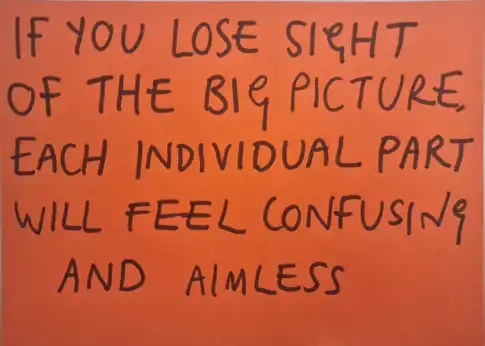 IF YOU LOSE SIGHT
OF THE BIG PICTURE,
EACH INDIVIDUAL PART
WILL FEEL CONFUSING
AND AIMLESS